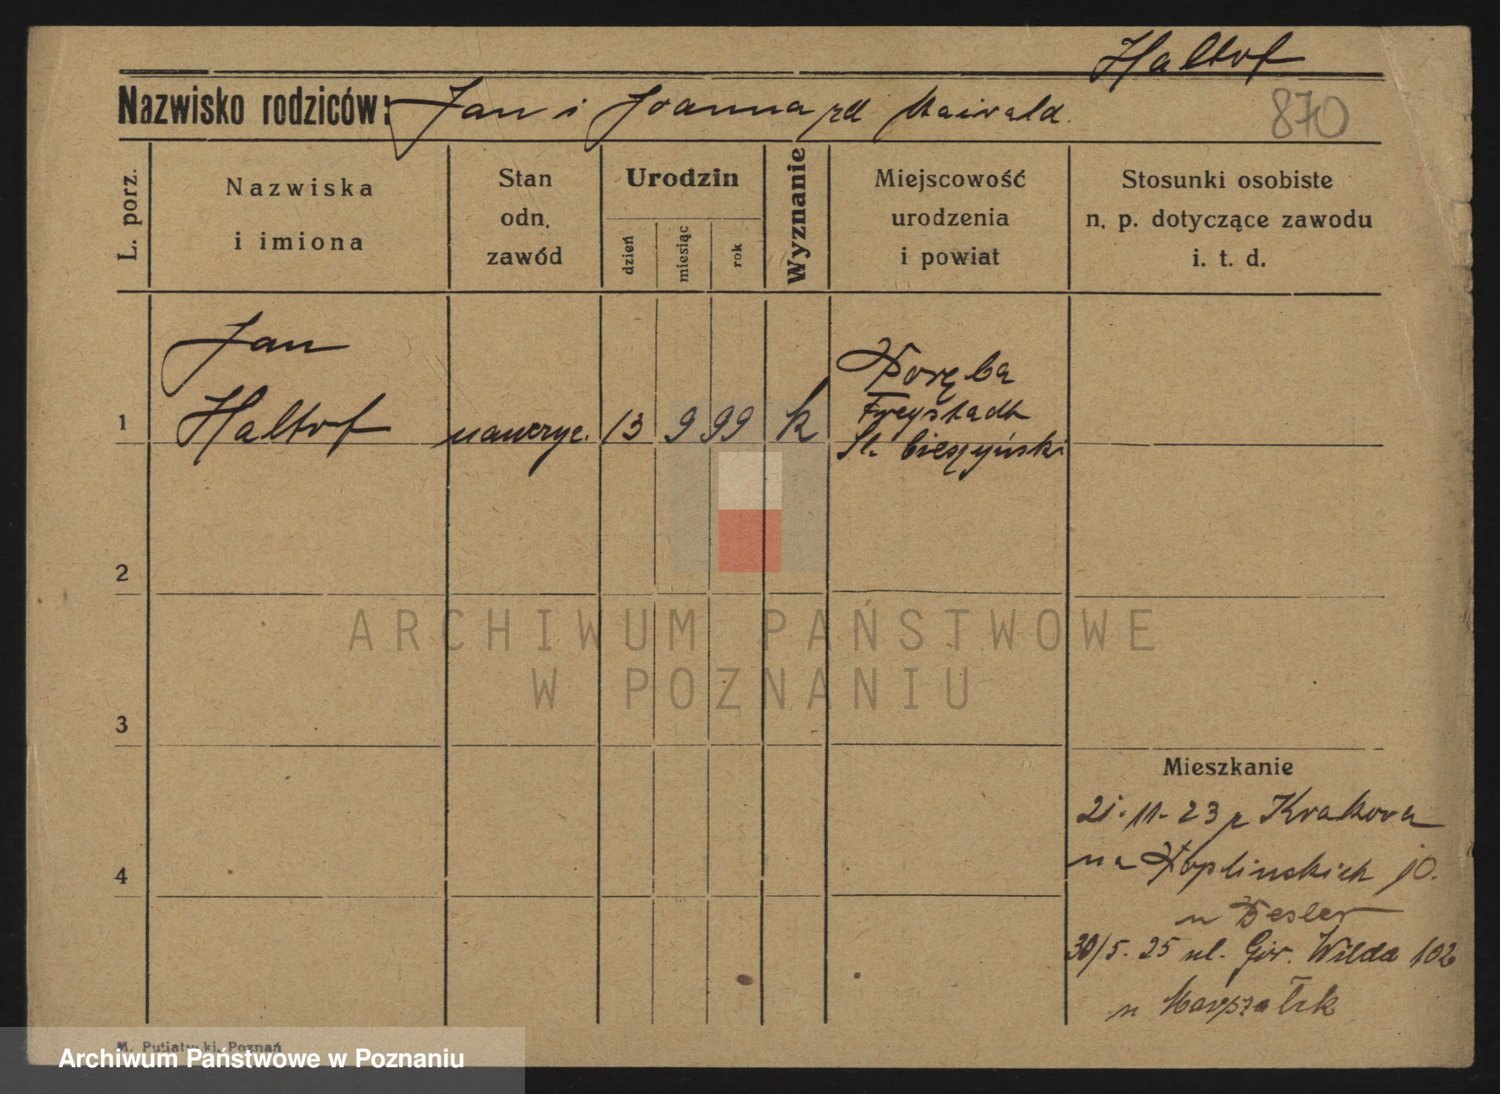 Haltof
Nazwisko rodziców: Jan i Joanna zd Maiwald.
870
L. porz.
Nazwiska
i imiona
Stan
odn.
zawód
Urodzin
dzień
miesiąc
rok
Wyznanie
Miejscowość
urodzenia
i powiat
Stosunki osobiste
n. p. dotyczące zawodu
i. t. d.
Jan
1 Haltof nauczyc. 13 9 99 k
Poręba
Freystadt
Śl. Cieszyński
2
3
4
ARCHIWUM PAŃSTWOWE
W POZNANIU
Mieszkanie
21. 11. 23 z Krakowa
na Poplińskich 10.
u Besler
30/5. 25 ul. Gór. Wilda 102
u Marszałek
M. Putiatycki, Poznań
Archiwum Państwowe w Poznaniu